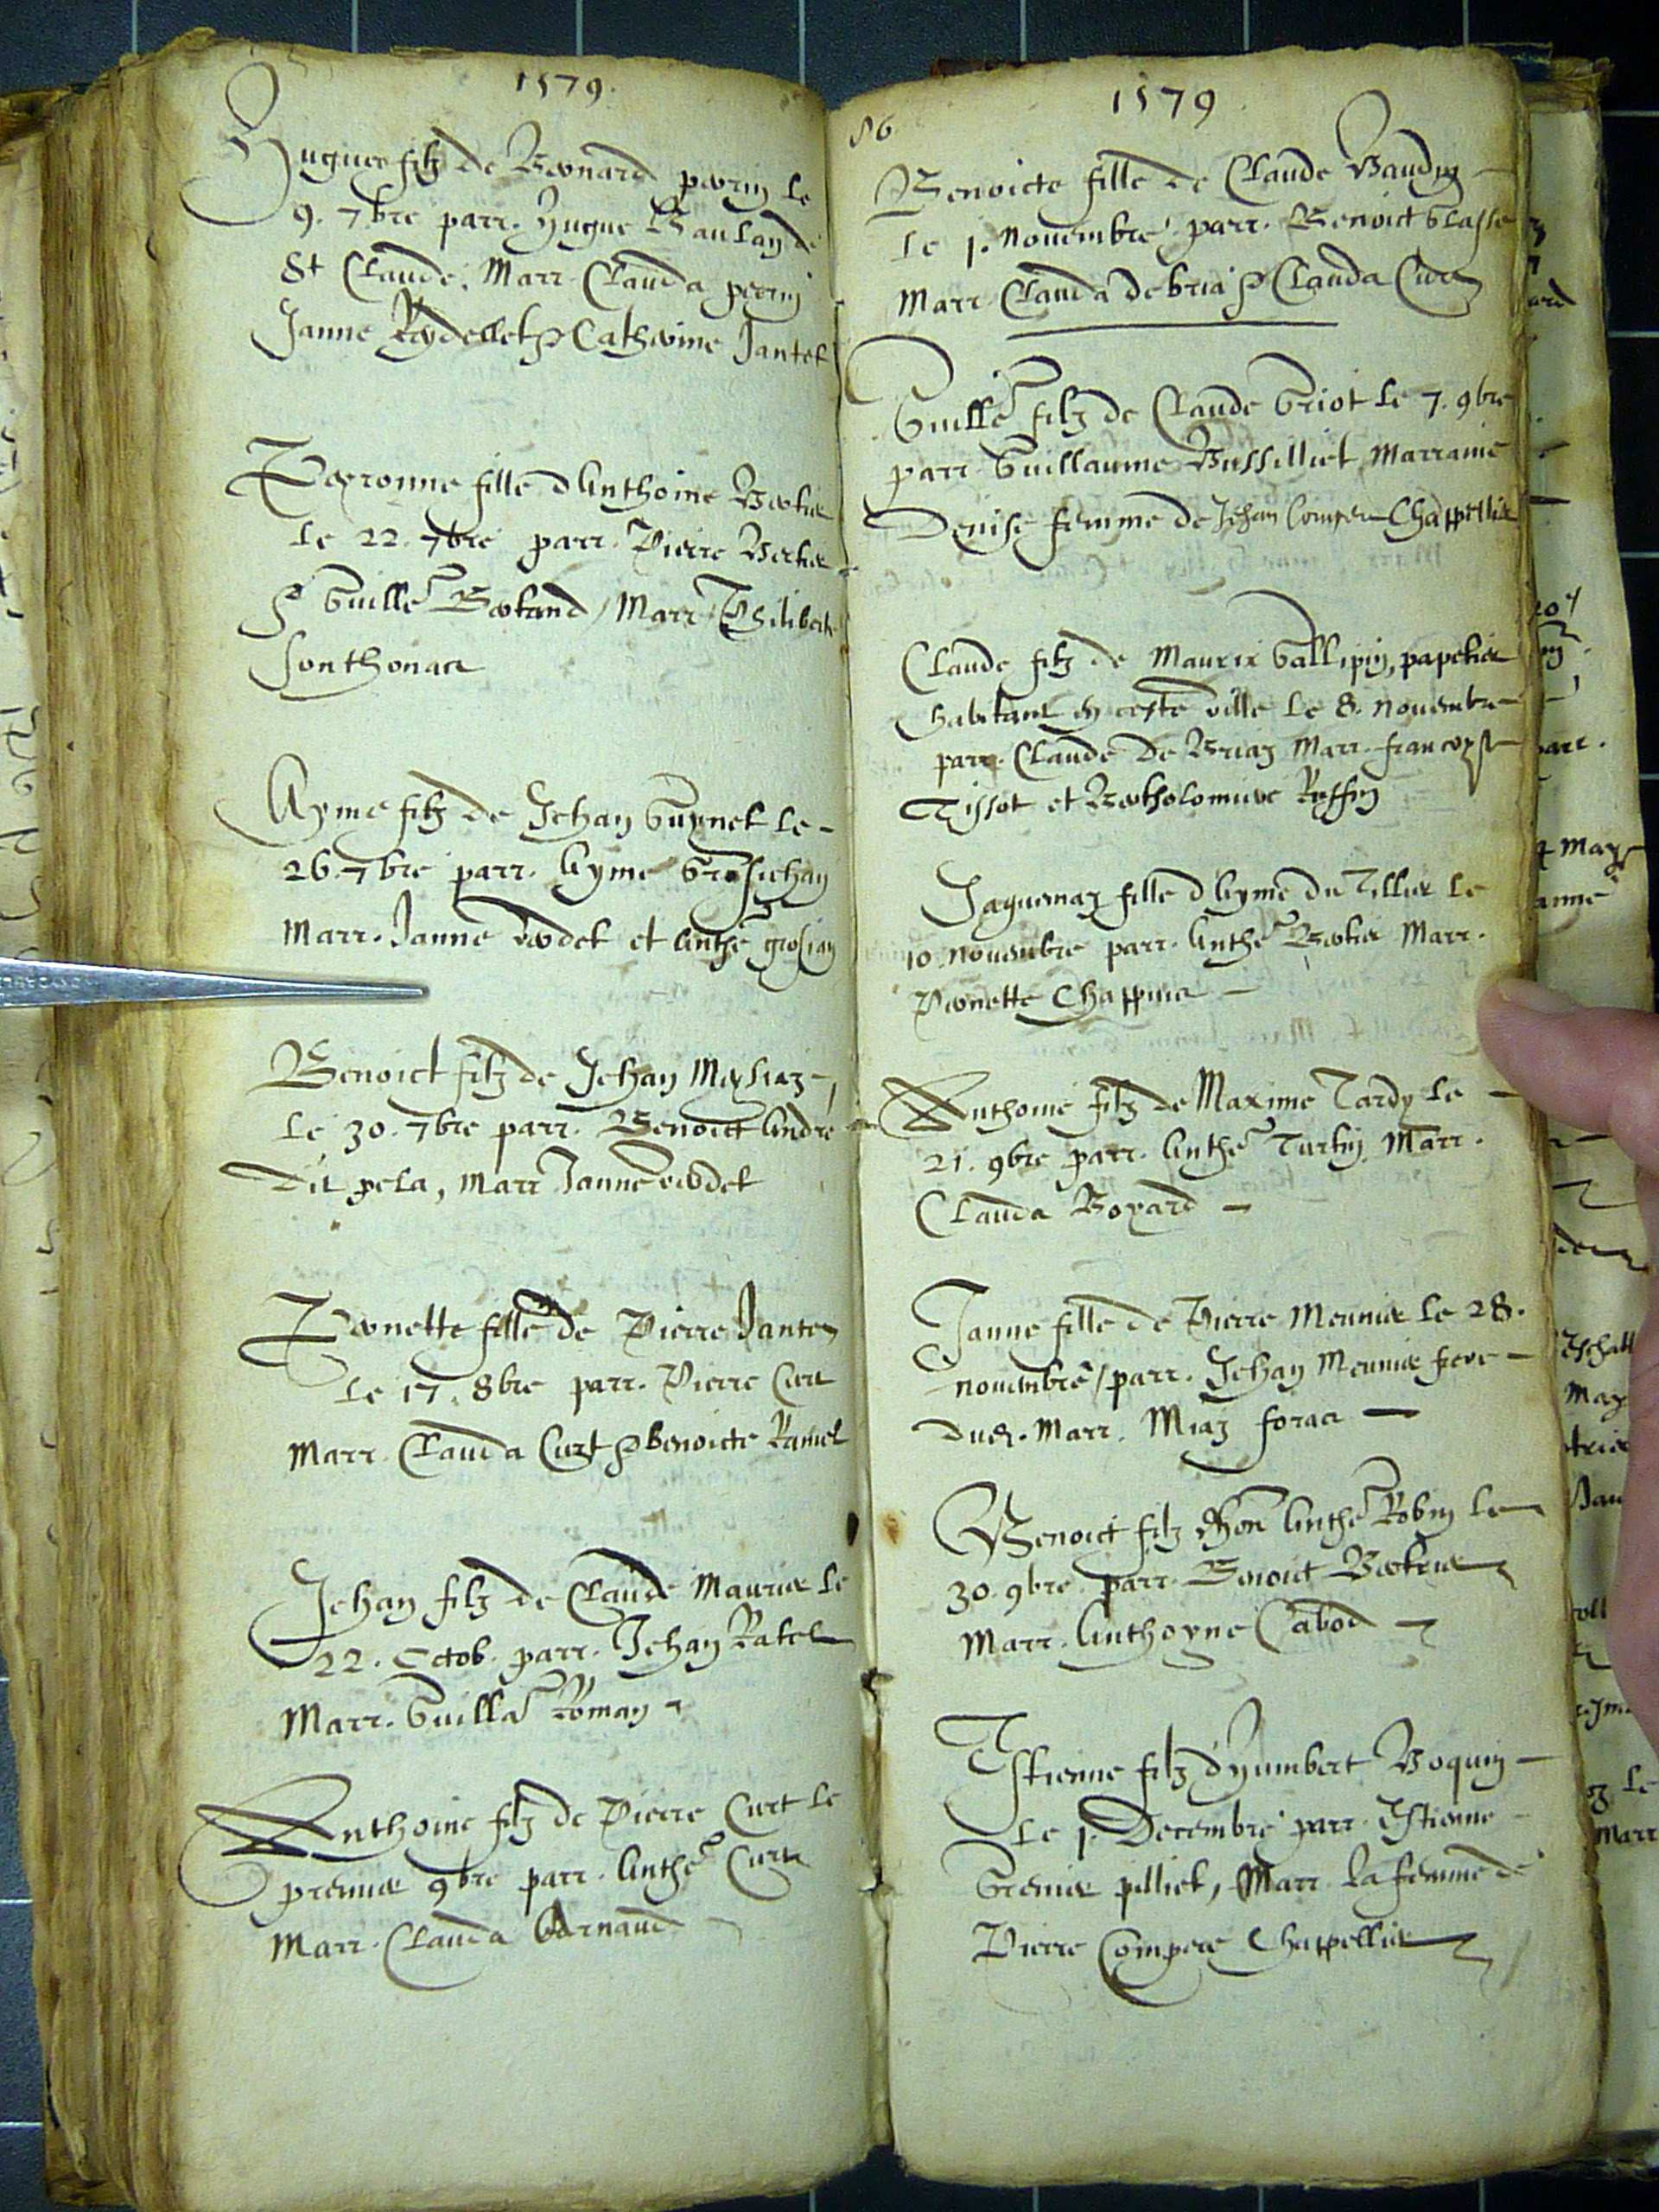 1579.
Hugues filz de Bernard perrin le
9. 7bre parr. Hugue Gaulay de
St Claude. Marr. Clauda perrin
Janne Reydellet & Catherine Jantet
Perronne fille d Anthoine Bertier
le 22. 7bre parr. Pierre Bertier
& Guille Bertand / Marr. Philiberte
Sonthonax
Ayme filz de Jehan Guynet le -
26. 7bre parr. Ayme Grosjehan
Marr. Janne Verdet et Anthe grosjan
Benoict filz de Jehan Meyliaz -,
le 30. 7bre parr. Benoict André
dit pela, Marr Janne verdet
Pernette fille de Pierre Janten
le 17. 8bre parr. Pierre Curt
Marr. Clauda Curt & benoicte Ramel
Jehan filz de Claude Maurier le
22. Octob. parr. Jehan Ratel
Marr. Guilla Roman
Anthoine filz de Pierre Curt le
premier 9bre parr. Anthe Curt
Marr. Clauda Bornand
86
1579
Benoicte fille de Claude Baudin -
le 1. Nouembre parr. Benoict Glasse
Marr. Clauda debria & Clauda Curt
Guille filz de Claude Griot le 7. 9bre
parr. Guillaume Bussilliet Marraine
Denise femme de Jehan Comper Chappellier
Claude filz de Maurix Gallipin, papetier
habitant en ceste ville le 8. nouembre
parr. Claude de Briaz Marr. francoyse
Tissot et Bertholomiere Ruffin
Jaquemaz fille d Ayme du Tillier le
10. nouembre parr. Anthe Bertier Marr.
Pernette Chappuis -
Anthoine filz de Maxime Tardy le -
21. 9bre parr. Anthe Turtin Marr.
Clauda Boyard -
Janne fille de Pierre Meunier le 28.
nouembre / parr. Jehan Meunier frere -
dud. Marr. Miaz forax -
Benoict filz Hon Anthe Robin le
30. 9bre. parr. Benoict Bertrier
Marr. Anthoyne Cabod -
Estienne filz d'Humbert Boquin -
le 1. Decembre parr. Estienne -
Grenier pilliet, Marr. la femme de
Pierre Compere Chappellier